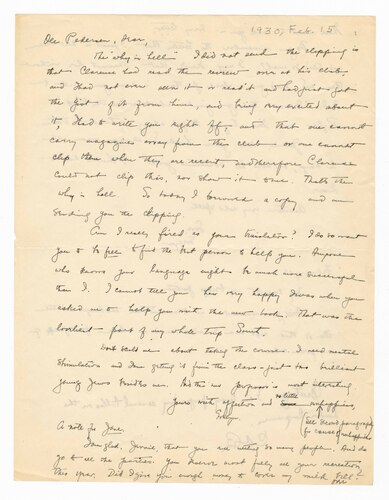 1930, Feb. 15
Ole Pedersen, Dear,
The "why in hell" I did not send the clipping is
that Clarence had read the review over at his club,
and I had not ever seen it or read it and had just got
the gist of it from him, and being very excited about
it, I had to write you right off, and that one cannot
carry magazines away from this club or one cannot
clip them when they are recent, and therefore Clarence
could not clip this, nor show it to me. That's the
why in hell. So today I borrowed a copy and am
sending you the clipping.
Am I really fired as your translator? I do so want
you to be free to find the best person to help you. Anyone
who knows your language ought to be much more successful
than I. I cannot tell you how very happy I was when you
asked me to help you with the new book. That was the
loveliest part of my whole trip
Don't scold me about taking the course. I need mental
stimulation and I am getting it from the class - just two brilliant
young Jews besides me. And the professor is most interesting.
Yours with affection and so little unhappiness,
(see second paragraph
for cause of unhappiness
A note for Jane.
I am glad, Jennie, that you are seeing so many people. And do
go to all the parties. You know most fully all your
this year. Did I give you enough money to cover my